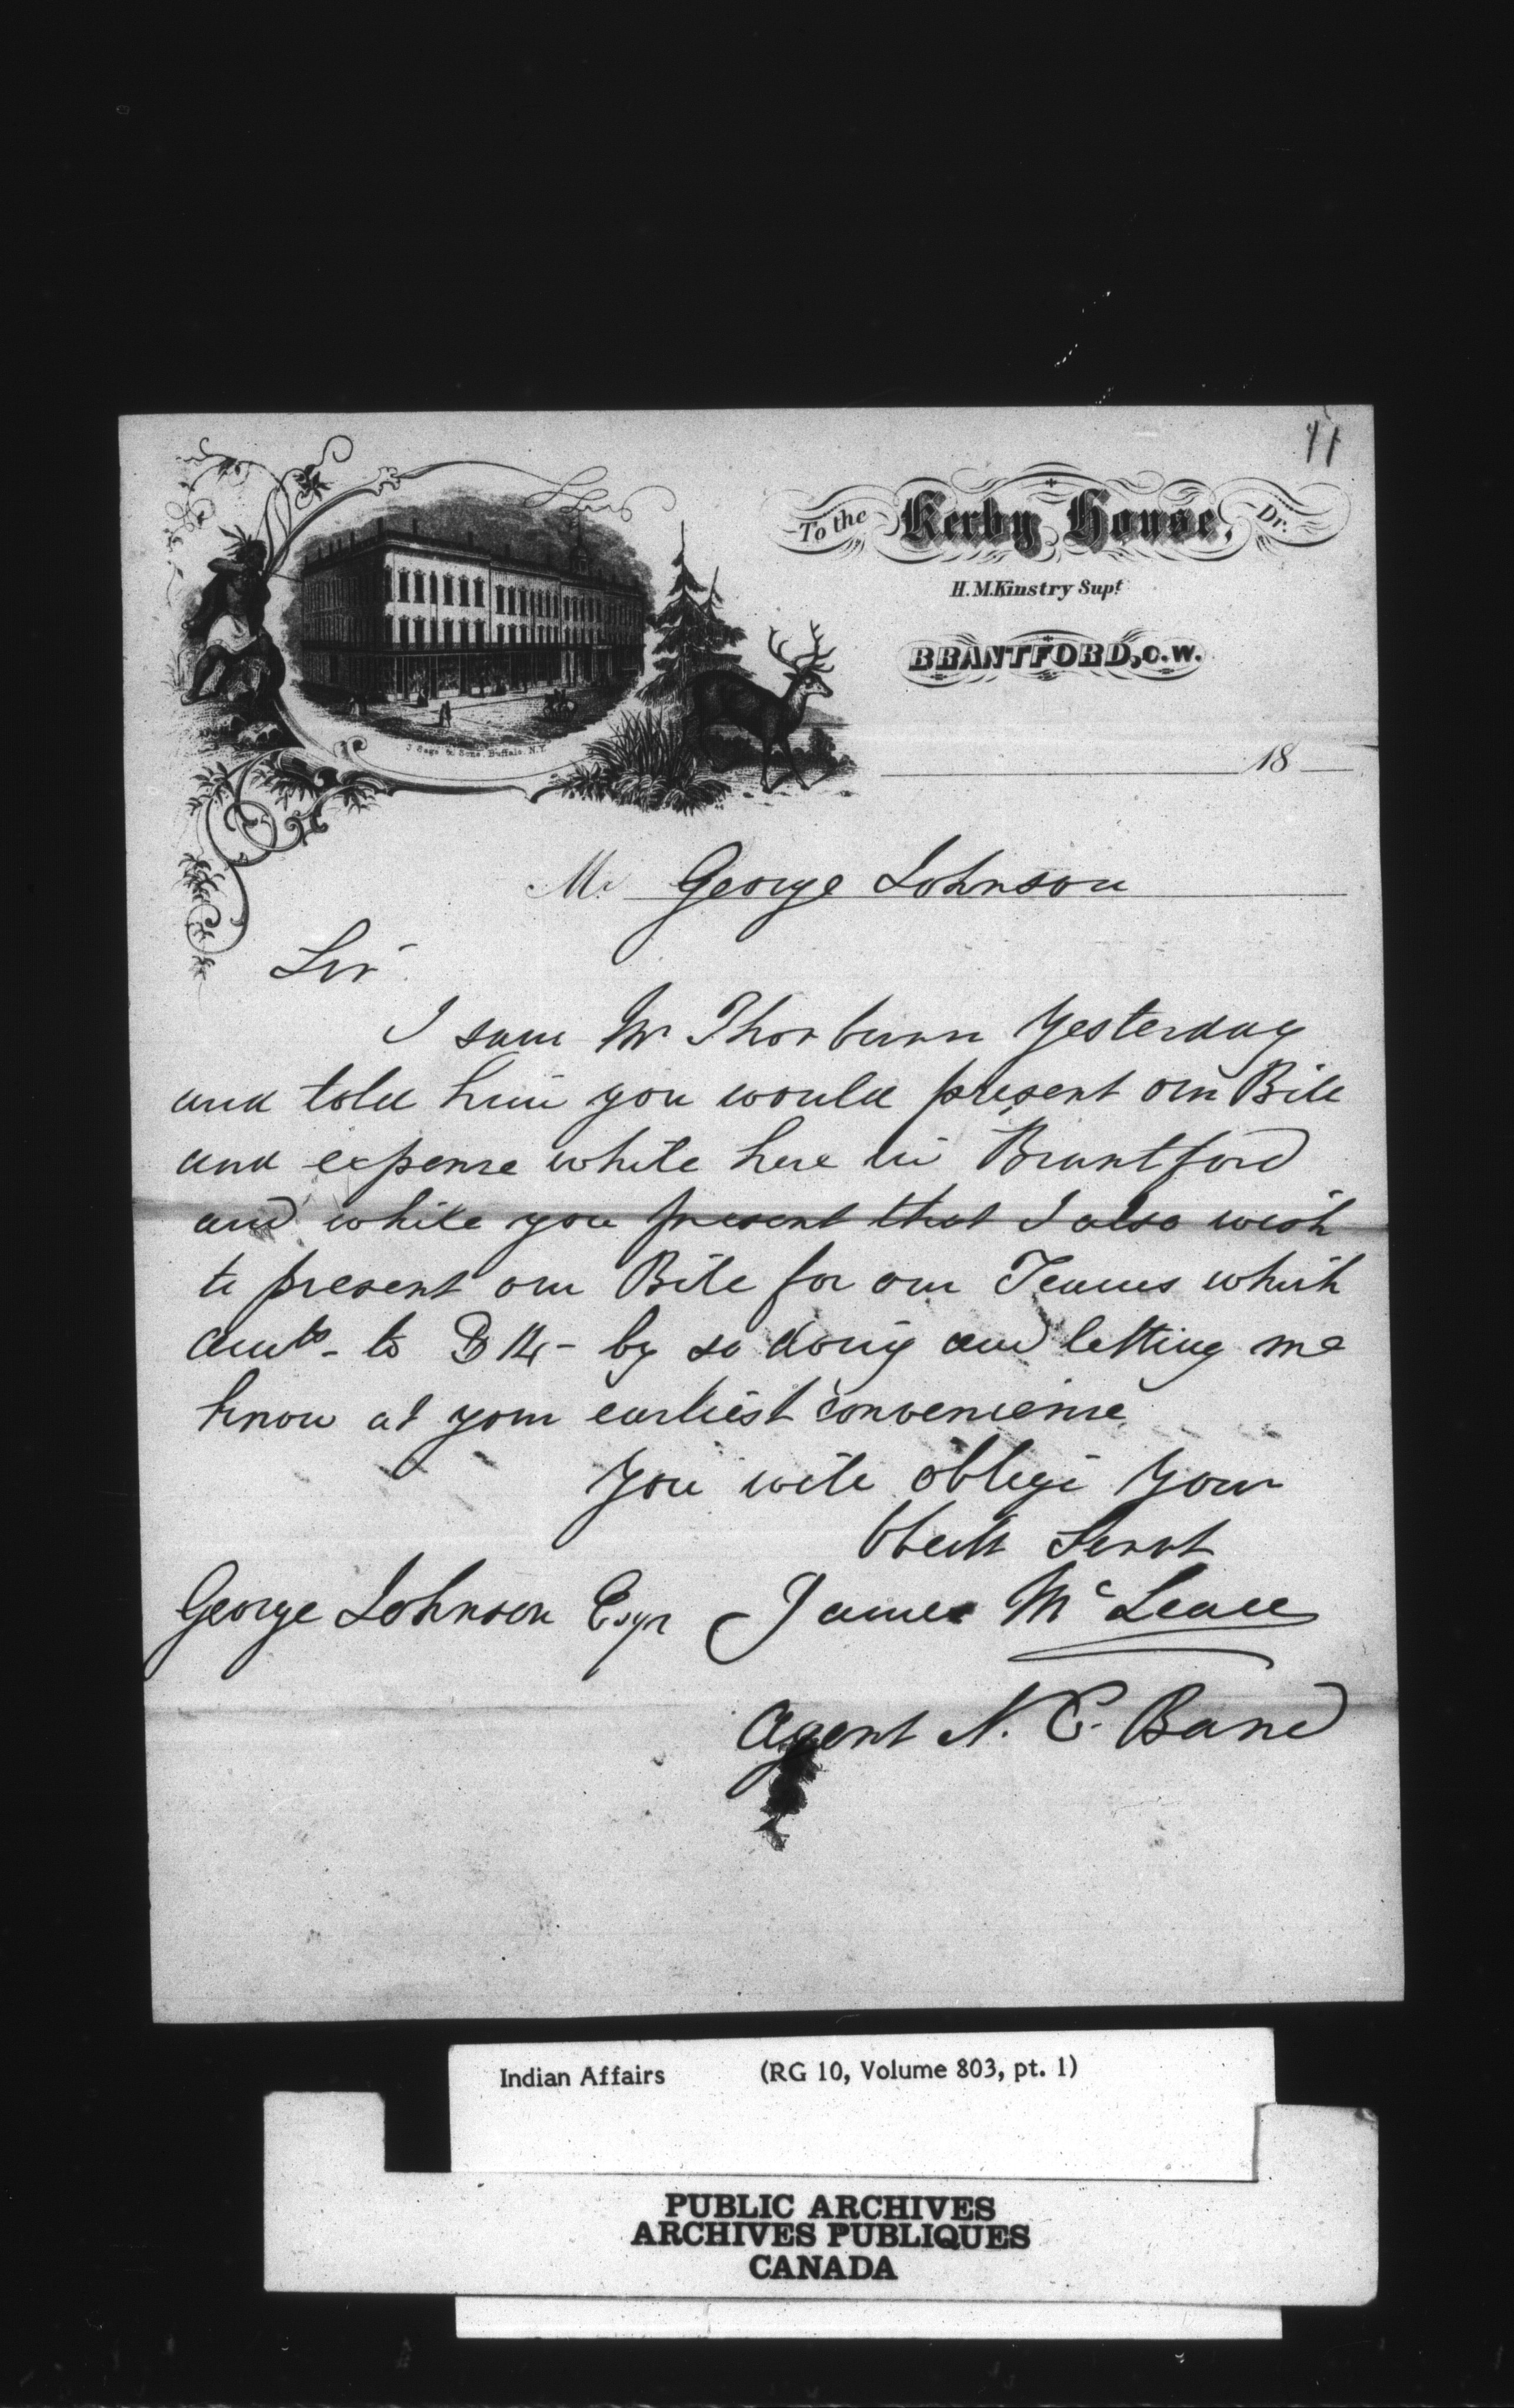 41
To the Kerby House, Dr.
H. M.Kinstry Supt.
BRANTFORD, C.W.
J. Sage & Sons, Buffalo, N.Y.
18
Mr George Johnson
Sir
I saw Mr Thorburn Yesterday
and told him you would present our Bill
and expense while here in Brantford
and while you present that I also wish
to present our Bill for our Teams which
amts - to $14 - by so doing and letting me
know at your earliest convenience
You will oblige Your
Obedt Servt
George Johnson Esqr James McLean
Agent N. C. Band
Indian Affairs (RG 10, Volume 803, pt. 1)
PUBLIC ARCHIVES
ARCHIVES PUBLIQUES
CANADA